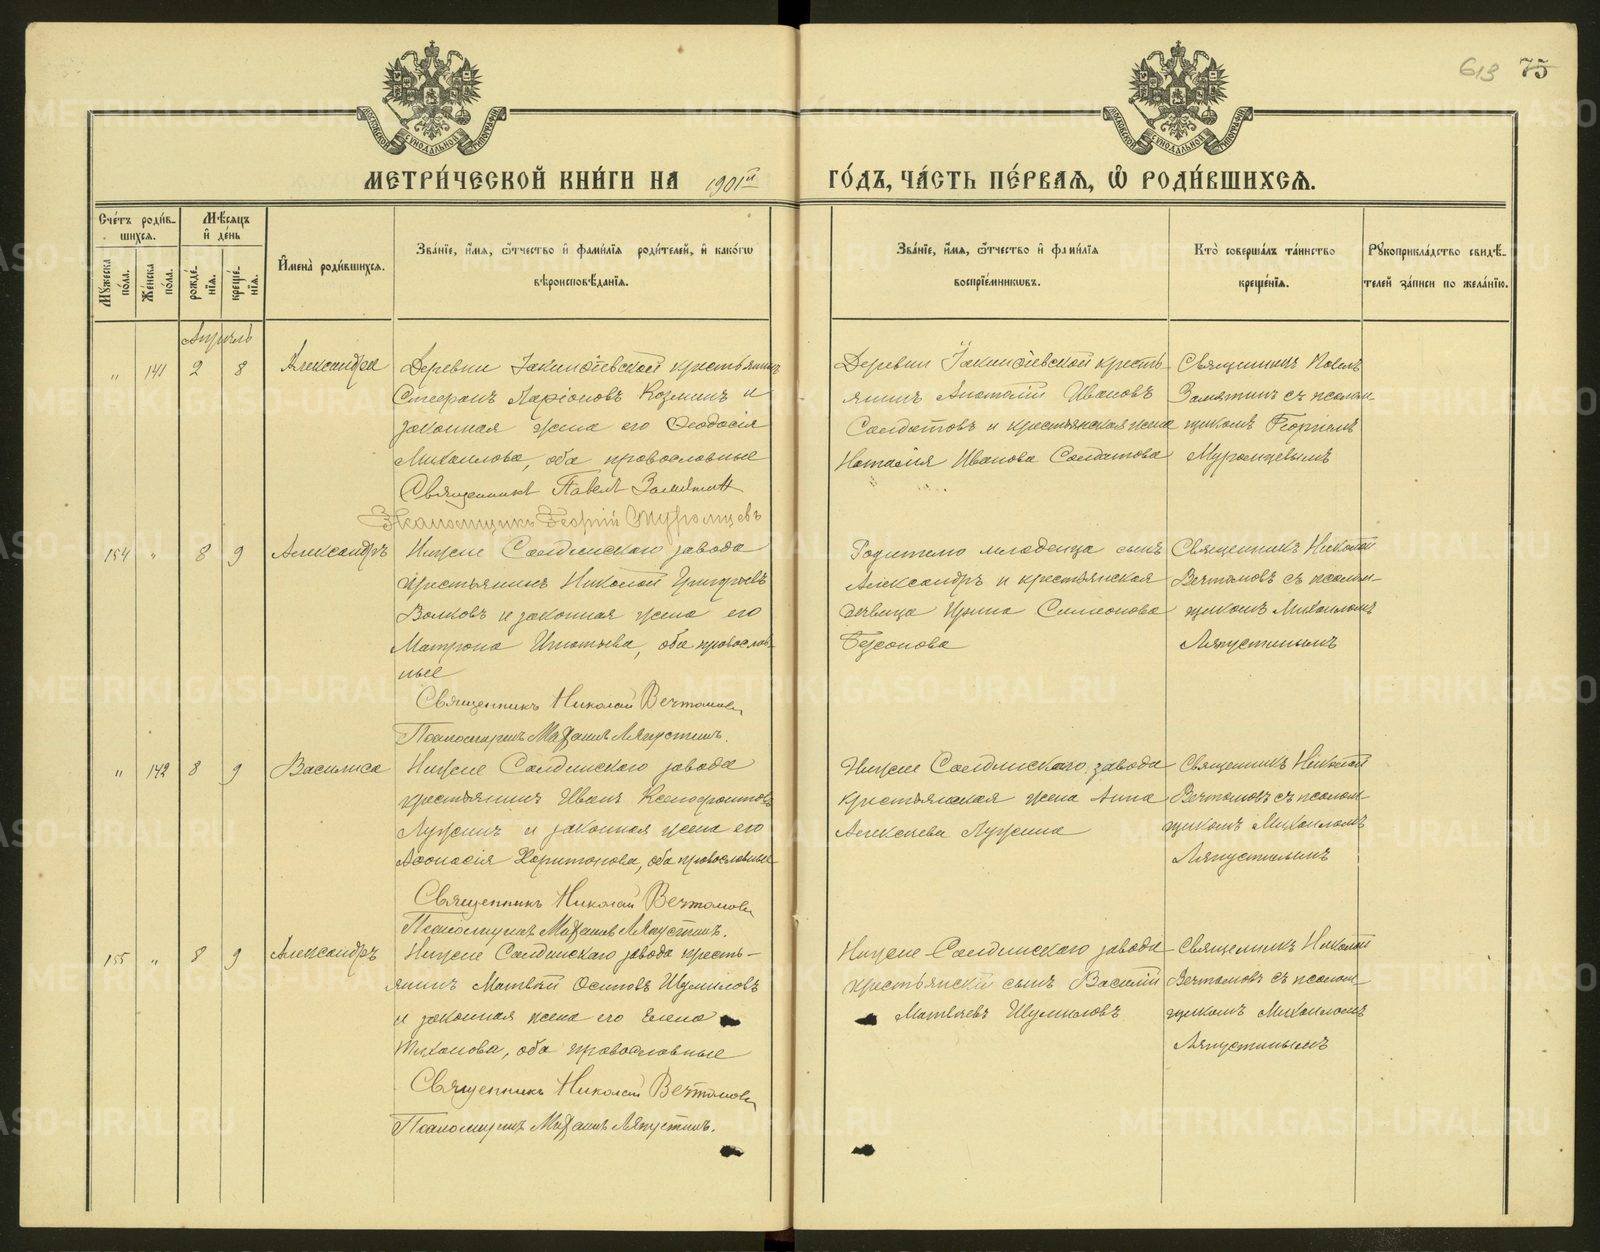 613 75
МОСКОВСКОЙ СУНОДАЛЬНОЙ ТИПОГРАФІИ
МОСКОВСКОЙ СУНОДАЛЬНОЙ ТИПОГРАФІИ
МЕТРИ́ЧЕСКОЙ КНИ́ГИ НА 1901й ГО́ДЪ, ЧА́СТЬ ПЕ́РВАѦ, Ѿ РОДИ́ВШИХСѦ.
Сче́тъ роди́в-
шихсѧ.
Мꙋ́жеска по́ла.
Же́нска по́ла.
Мѣ́сѧцъ
и҆ де́нь
рожде́нїѧ.
креще́нїѧ.
И҆мена̀ роди́вшихсѧ.
Зва́нїе, и҆́мѧ, ѻ҆́тчество и҆ фами́лїѧ роди́телей, и҆ како́гѡ
вѣроисповѣ́данїѧ.
Зва́нїе, и҆́мѧ, ѻ҆́тчество и҆ фами́лїѧ
воспрїе́мникѡвъ.
Кто̀ соверша́лъ та́инство
креще́нїѧ.
Рꙋкоприкла́дство свидѣ́-
телей за́писи по жела́нїю.
Апрѣль
" 141 2 8 Александра
Деревни Іакинѳіевской крестьянинъ
Стефанъ Ларіоновъ Козминъ и
законная жена его Ѳеодосія
Михаилова, оба православные
Священникъ Павелъ Замятин
Псаломщикъ Георгій Муромцевъ
Деревни Іакинѳіевской кресть-
янинъ Анатолій Ивановъ
Солдатовъ и крестьянская жена
Наталія Иванова Солдатова
Священникъ Павелъ
Замятинъ съ псалом
щикомъ Георгіемъ
Муромцевымъ
154 " 8 9 Александръ
Нижне Салдинскаго завода
крестьянинъ Николай Григорьевъ
Волковъ и законная жена его
Матрона Игнатьева, оба православ-
ные
Священникъ Николай Вечтомовъ
Псаломщикъ Михаилъ Ляпустинъ.
Родителю младенца сынъ
Александръ и крестьянская
дѣвица Ирина Симеонова
Священникъ Николай
Вечтомовъ съ псалом-
щикомъ Михаиломъ
Ляпустинымъ
" 142 8 9 Василиса
Нижне Салдинскаго завода
крестьянинъ Иванъ Ксенофонтовъ
Лужинъ и законная жена его
Аѳанасія Харитонова, оба православные
Священникъ Николай Вечтомовъ
Псаломщикъ Михаилъ Ляпустинъ.
Нижне Салдинскаго завода
крестьянская жена Анна
Алексѣева Лужина
Священникъ Николай
Вечтомовъ съ псалом-
щикомъ Михаиломъ
Ляпустинымъ
155 " 8 9 Александръ
Нижне Салдинскаго завода кресть-
янинъ Матвѣй Осиповъ Шумиловъ
и законная жена его Елена
Тихонова, оба православные
Священникъ Николай Вечтомовъ
Псаломщикъ Михаилъ Ляпустинъ.
Нижне-Салдинскаго завода
крестьянскій сынъ Василій
Матвѣевъ Шумиловъ
Священникъ Николай
Вечтомовъ съ псалом-
щикомъ Михаиломъ
Ляпустинымъ
METRIKI.GASO-URAL.RU